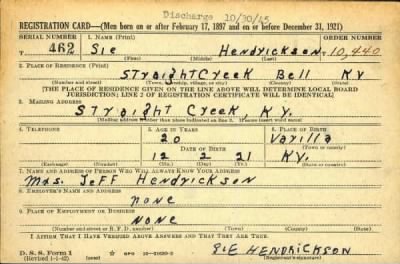 Discharge 10/30/45
REGISTRATION CARD—(Men born on or after February 17, 1897 and on or before December 31, 1921)
SERIAL NUMBER 1. NAME (Print) ORDER NUMBER
462 Sie Hendrickson 10,440
(First) (Middle) (Last)
2. PLACE OF RESIDENCE (Print)
Straight Creek Bell KY
(Number and street) (Town, township, village, or city) (County) (State)
[THE PLACE OF RESIDENCE GIVEN ON THE LINE ABOVE WILL DETERMINE LOCAL BOARD
JURISDICTION; LINE 2 OF REGISTRATION CERTIFICATE WILL BE IDENTICAL]
3. MAILING ADDRESS
Straight Creek KY.
(Mailing address if other than place indicated on line 2. If same insert word same)
4. TELEPHONE 5. AGE IN YEARS 6. PLACE OF BIRTH
20 Varilla
DATE OF BIRTH (Town or county)
12 2 21 KY.
(Exchange) (Number) (Mo.) (Day) (Yr.) (State or country)
7. NAME AND ADDRESS OF PERSON WHO WILL ALWAYS KNOW YOUR ADDRESS
Mrs. Jeff Hendrickson
8. EMPLOYER'S NAME AND ADDRESS
none
9. PLACE OF EMPLOYMENT OR BUSINESS
none
(Number and street or R. F. D. number) (Town) (County) (State)
I AFFIRM THAT I HAVE VERIFIED ABOVE ANSWERS AND THAT THEY ARE TRUE.
D. S. S. Form 1
(Revised 1-1-42) GPO
SIE HENDRICKSON
(Registrant's signature)